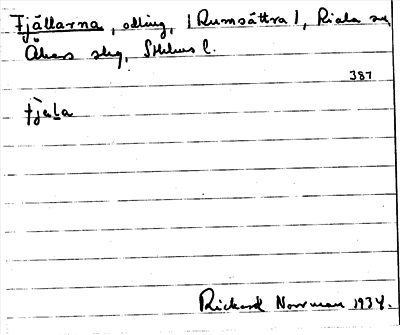 Fjällarna, odling, (Rumsättra), Riala sn,
Åkers slg, Sthlms l.
387
fjạ̀La
Rickard Norrman 1934.